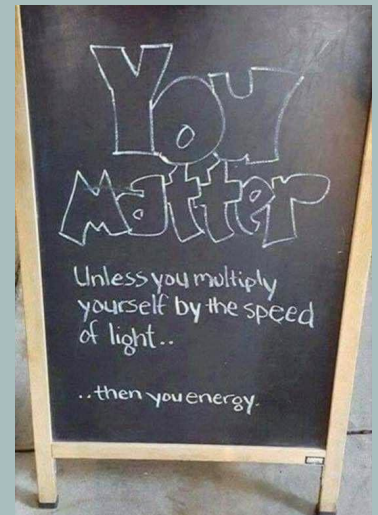 You
matter
Unless you multiply
yourself by the speed
of light..
..then you energy.